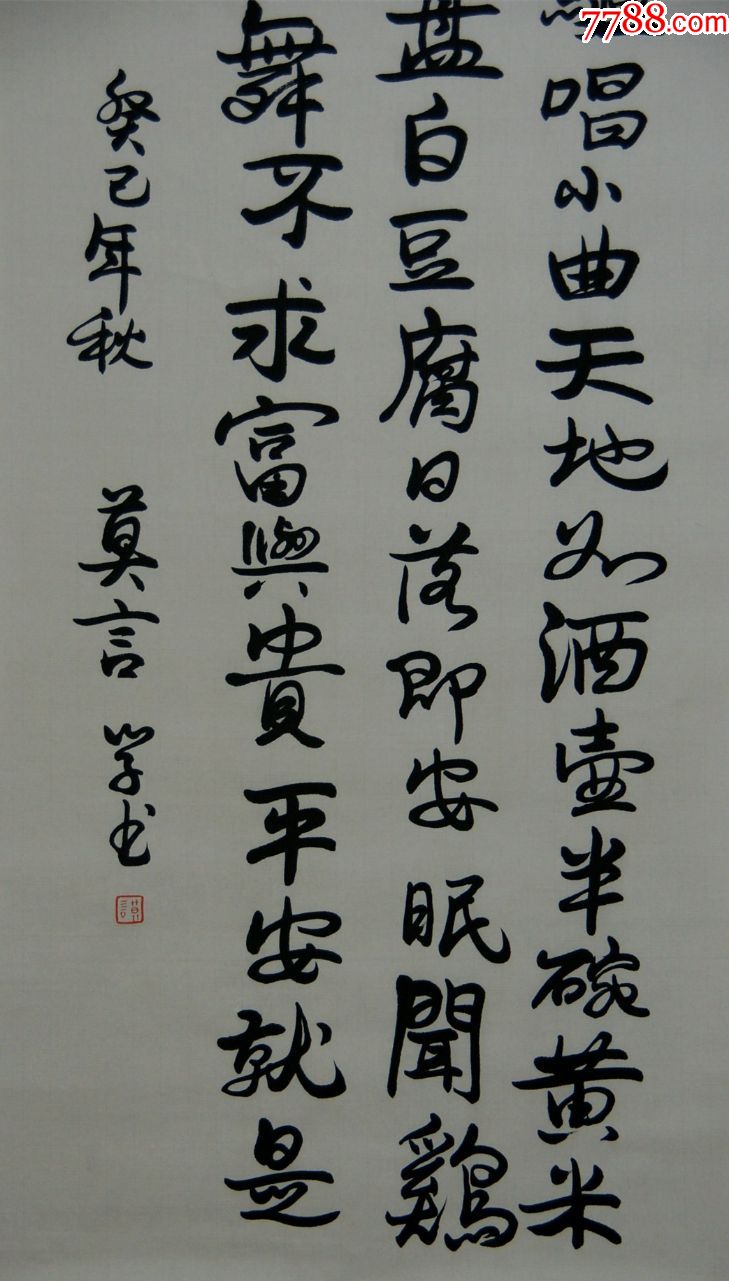 7788.com
唱小曲天地如酒壶半碗黄米
盐白豆腐日落即安眠聞鷄
舞不求富與貴平安就是
癸巳年秋
莫言學书